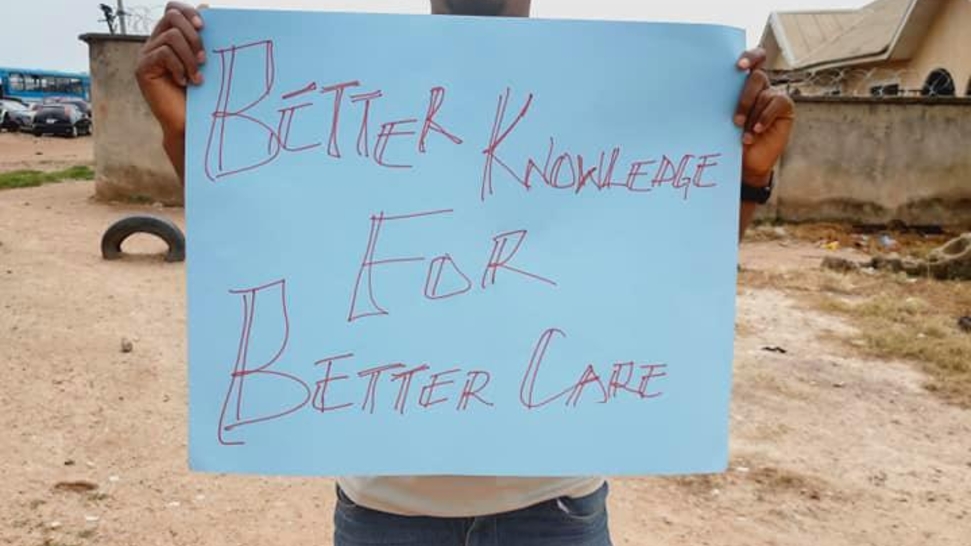 BETTER KNOWLEDGE
FOR
BETTER CARE